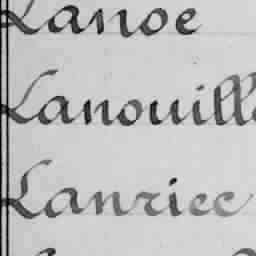 Lanoe
Lanouill
Lanriec